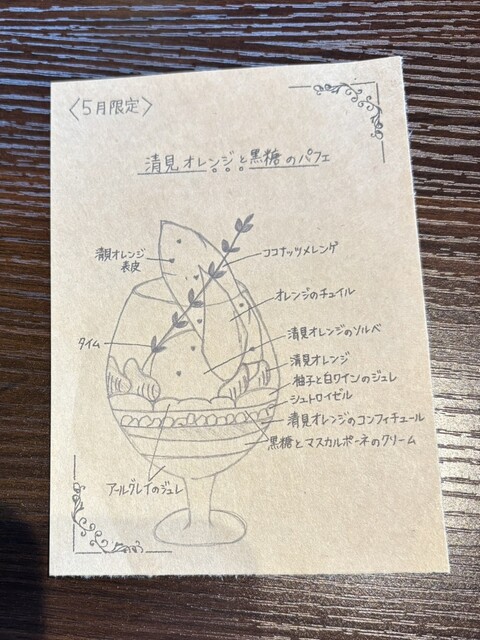 〈5月限定〉
清見オレンジと黒糖のパフェ
清見オレンジ
表皮
ココナッツメレンゲ
オレンジのチュイル
タイム
清見オレンジのソルベ
清見オレンジ
柚子と白ワインのジュレ
シュトロイゼル
清見オレンジのコンフィチュール
黒糖とマスカルポーネのクリーム
アールグレイのジュレ